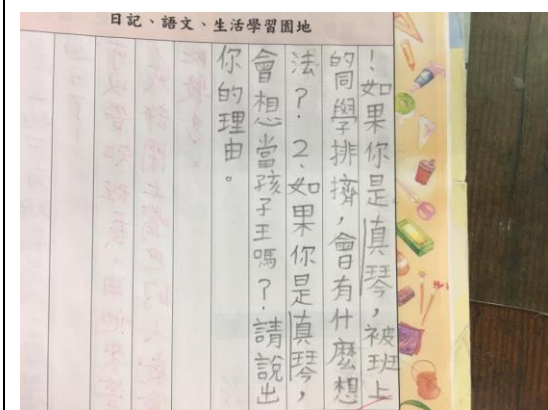 日記、語文、生活學習園地
！如果你是真琴，被班上
的同學排擠，會有什麼想
法？．2、如果你是真琴，
會想當孩子王嗎？．請說出
你的理由。